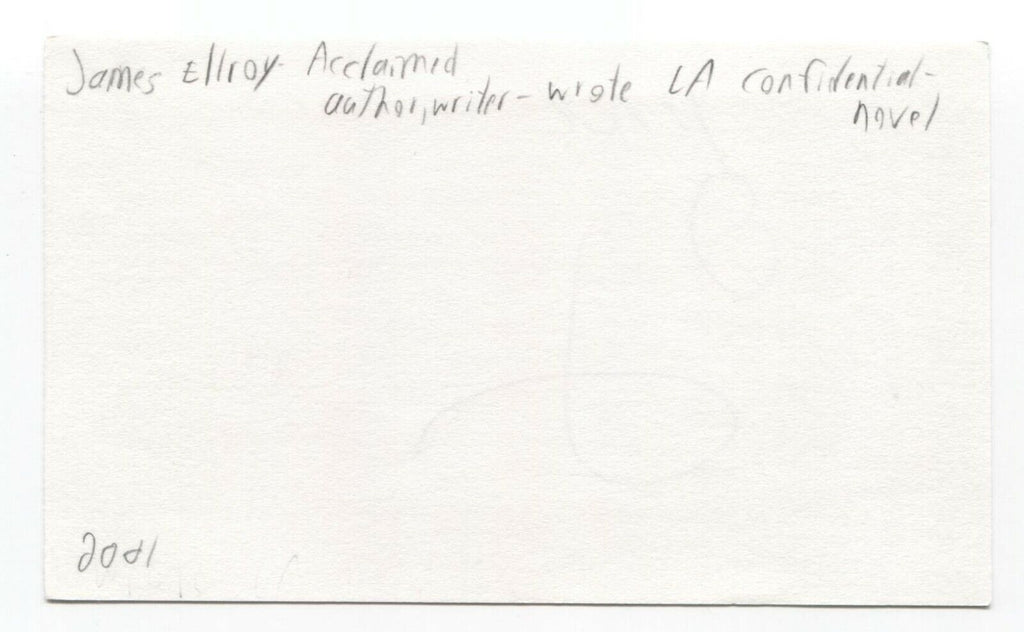 James Ellroy- Acclaimed
author, writer - wrote LA Confidential-
novel
2001